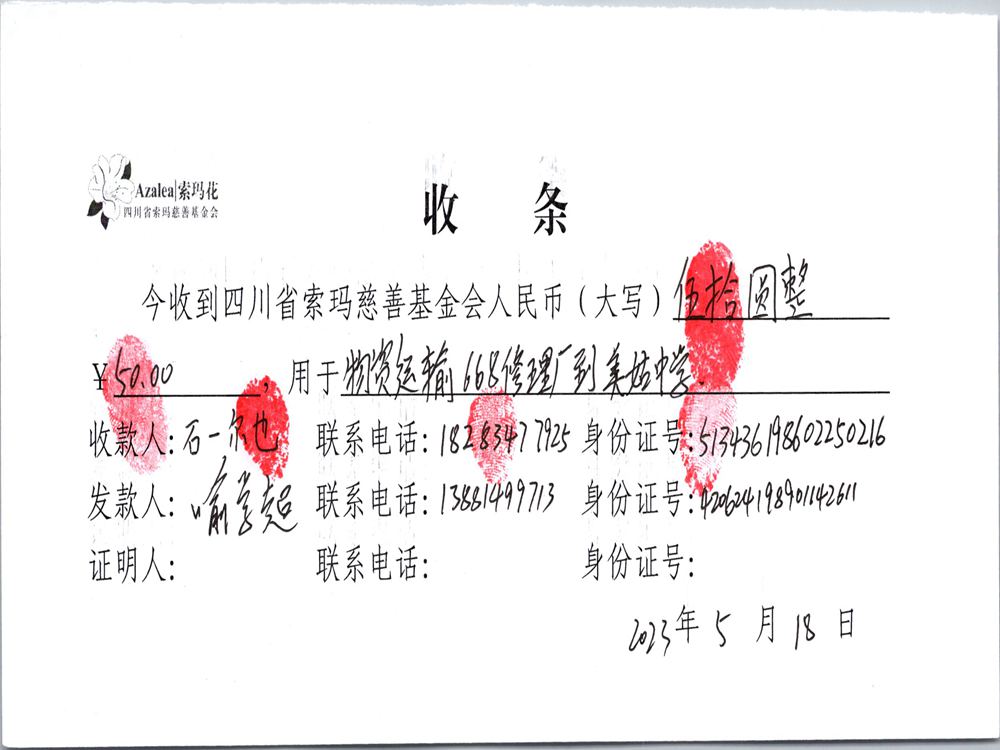 Azalea|索玛花
四川省索玛慈善基金会
收 条
今收到四川省索玛慈善基金会人民币（大写）伍拾圆整
¥50.00，用于物资运输668修理厂到美姑中学.
收款人:石一尔也 联系电话:18283477925 身份证号:513436198602250216
发款人:喻学超 联系电话:13881499713 身份证号:420624198901142611
证明人: 联系电话: 身份证号:
2023年5月18日